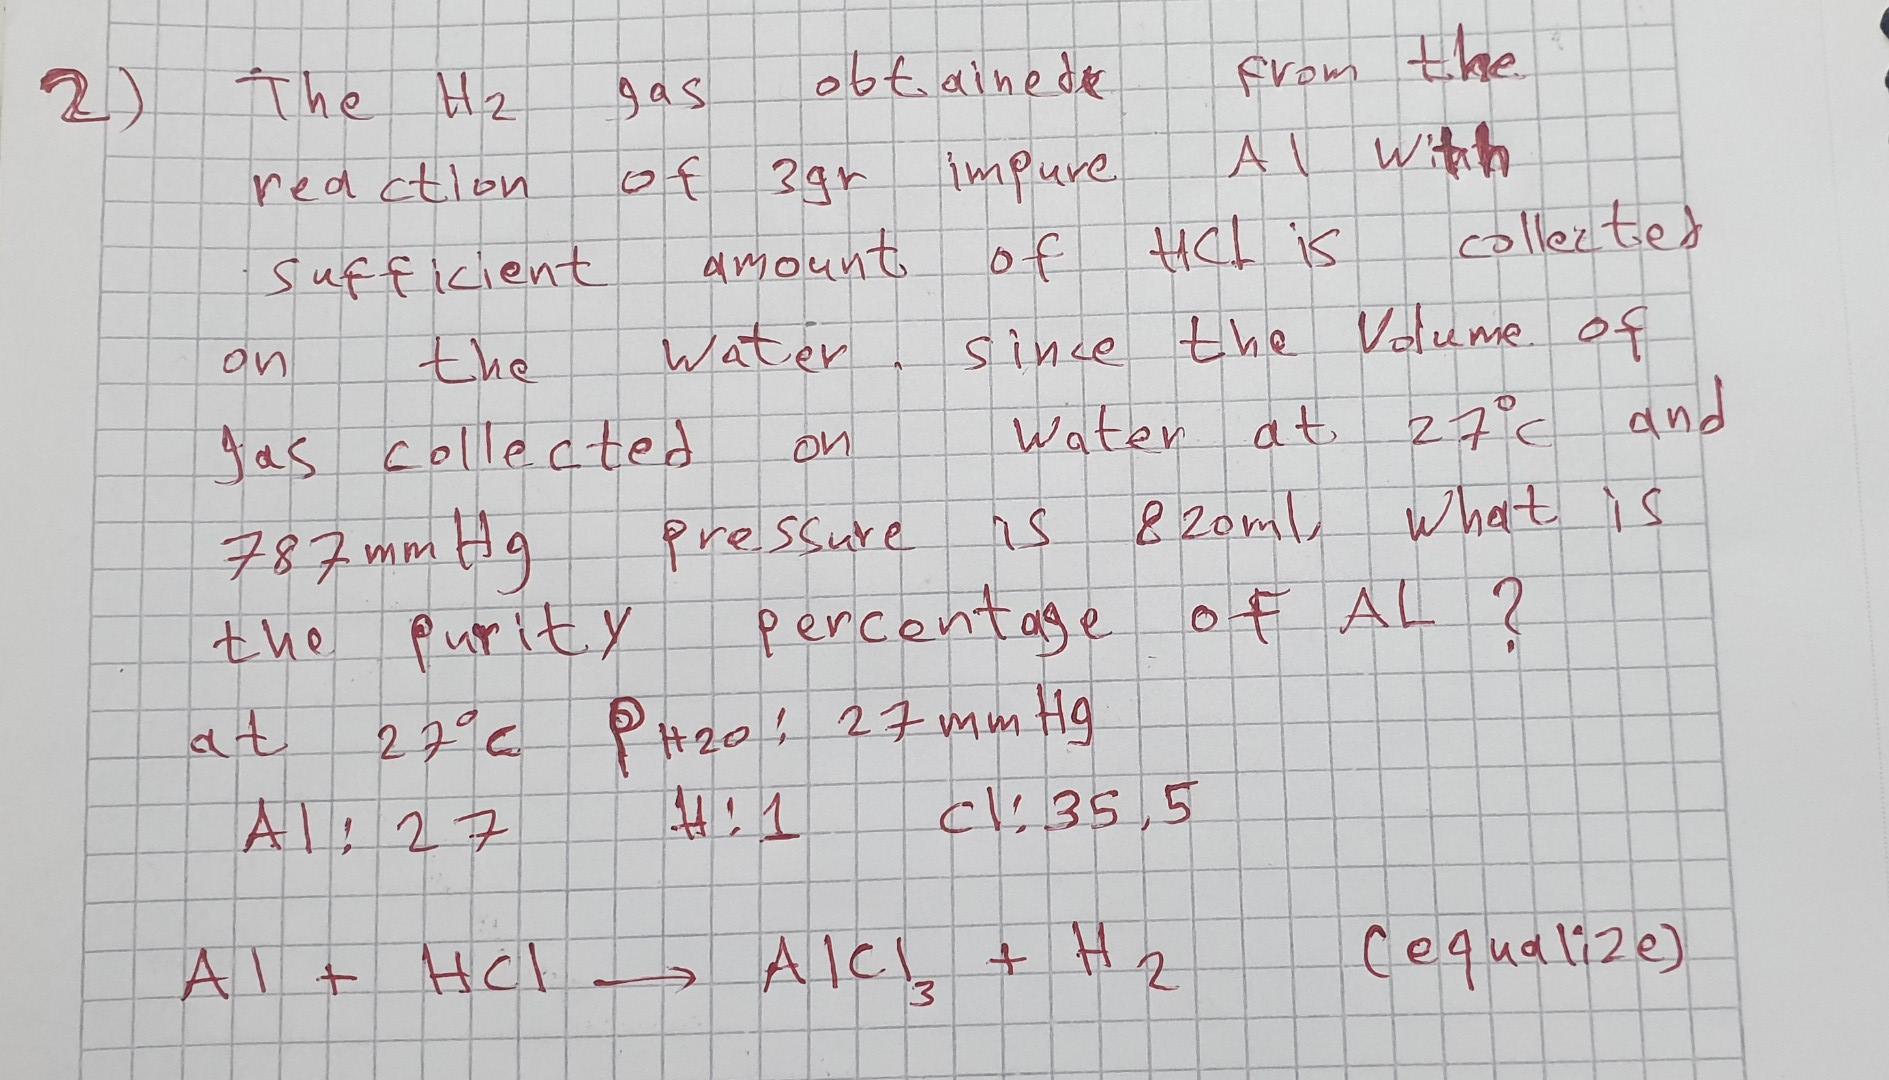 2) The H2 gas obtained from the
reaction of 3gr impure Al with
sufficient amount of HCl is collected
on the water. since the Volume of
gas collected on water at 27°C and
787mmHg pressure is 820ml, what is
the purity percentage of AL ?
at 27°C PH2O: 27mmHg
Al: 27 H: 1 Cl: 35,5
Al + HCl → AlCl3 + H2 (equalize)